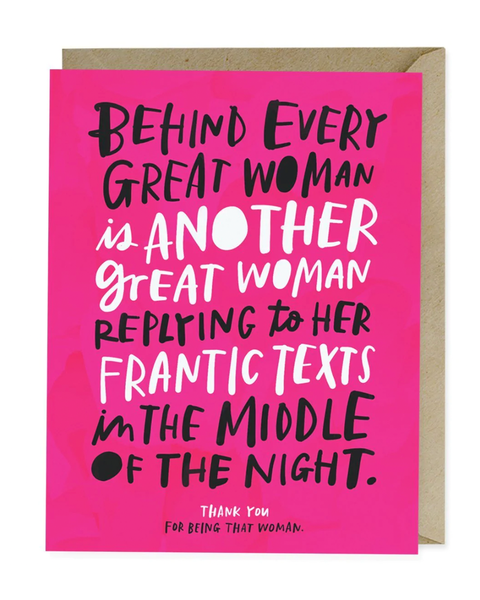 BEHIND EVERY
GREAT WOMAN
is ANOTHER
grEAT WOMAN
REPLYING to HER
FRANTIC TEXTS
in THE MIDDLE
OF THE NIGHT.
THANK YOU
FOR BEING THAT WOMAN.